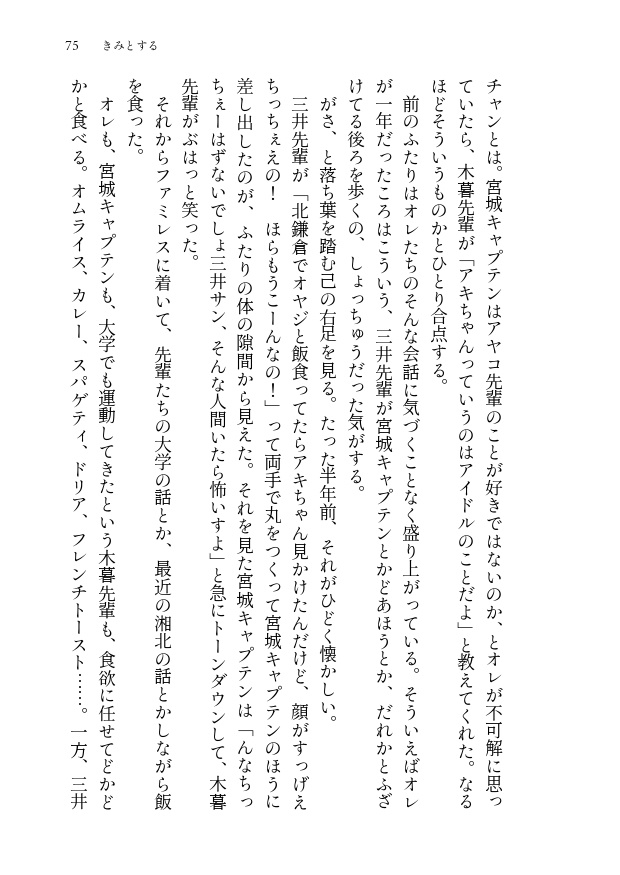 75 きみとする
チャンとは。宮城キャプテンはアヤコ先輩のことが好きではないのか、とオレが不可解に思っ
ていたら、木暮先輩が「アキちゃんっていうのはアイドルのことだよ」と教えてくれた。なる
ほどそういうものかとひとり合点する。
前のふたりはオレたちのそんな会話に気づくことなく盛り上がっている。そういえばオレ
が一年だったころはこういう、三井先輩が宮城キャプテンとかどあほうとか、だれかとふざ
けてる後ろを歩くの、しょっちゅうだった気がする。
がさ、と落ち葉を踏む己の右足を見る。たった半年前、それがひどく懐かしい。
三井先輩が「北鎌倉でオヤジと飯食ってたらアキちゃん見かけたんだけど、顔がすっげえ
ちっちぇえの！　ほらもうこーんなの！」って両手で丸をつくって宮城キャプテンのほうに
差し出したのが、ふたりの体の隙間から見えた。それを見た宮城キャプテンは「んなちっ
ちぇーはずないでしょ三井サン、そんな人間いたら怖いすよ」と急にトーンダウンして、木暮
先輩がぶはっと笑った。
それからファミレスに着いて、先輩たちの大学の話とか、最近の湘北の話とかしながら飯
を食った。
オレも、宮城キャプテンも、大学でも運動してきたという木暮先輩も、食欲に任せてどかど
かと食べる。オムライス、カレー、スパゲティ、ドリア、フレンチトースト……。一方、三井